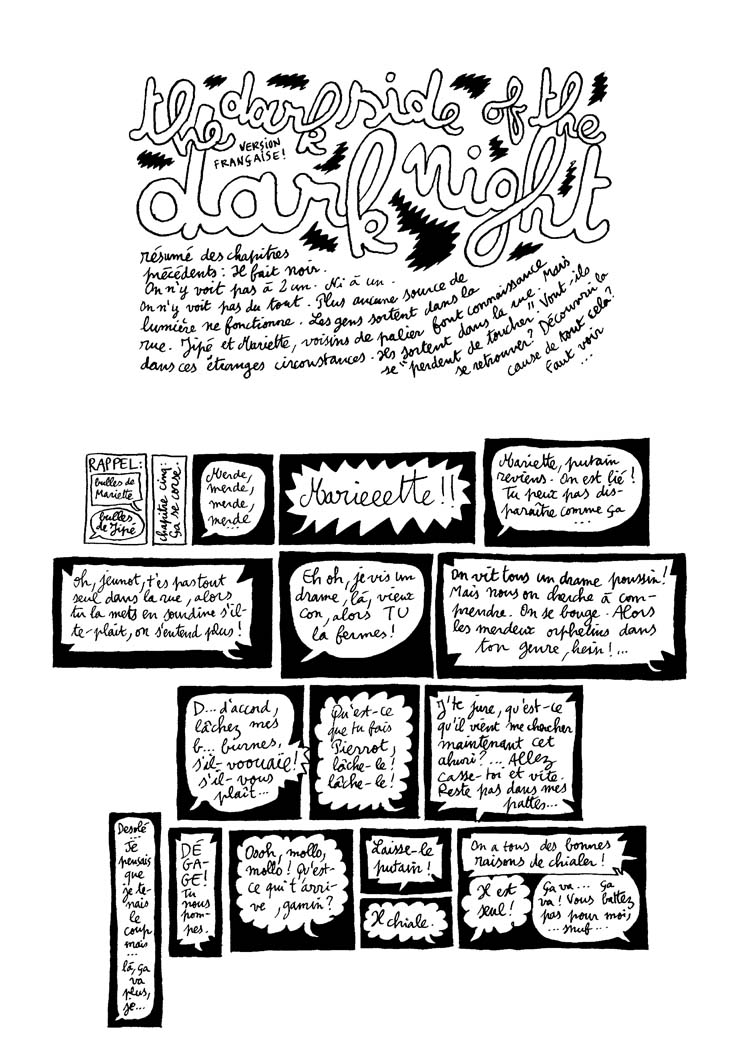 the dark side of the
dark night
VERSION
FRANÇAISE!
résumé des chapitres
précédents : Il fait noir.
On n'y voit pas à 2 cm. Ni à un.
On n'y voit pas du tout. Plus aucune source de
lumière ne fonctionne. Les gens sortent dans la
rue. Jipé et Mariette, voisins de palier font connaissance
dans ces étranges circonstances. Ils sortent dans la rue. Mais
se "perdent de toucher". Vont-ils
se retrouver? Découvrir la
cause de tout cela?
Faut voir
...
RAPPEL:
bulles de
Mariette
bulles
de Jipé
chapitre cinq:
Ça se corse.
Merde,
merde,
merde,
merde
...
Marieeette!!
Mariette, putain
reviens. On est lié!
Tu peux pas dis-
paraître comme ça
...
Oh, jeunot, t'es pas tout
seul dans la rue, alors
tu la mets en sourdine s'il-
te-plaît, on s'entend plus!
Eh oh, je vis un
drame, là, vieux
con, alors TU
la fermes!
On vit tous un drame poussin!
Mais nous on cherche à com-
prendre. On se bouge. Alors
les merdeux orphelins dans
ton genre, hein!...
D... d'accord,
lâchez mes
b... burnes,
s'il-voouaie!
s'il-vous
plaît...
Qu'est-ce
que tu fais
Pierrot,
lâche-le!
lâche-le!
J'te jure, qu'est-ce
qu'il vient me chercher
maintenant cet
ahuri?... Allez
casse-toi et vite.
Reste pas dans mes
pattes...
Desolé
...
Je
pensais
que
je te-
nais
le
coup
mais
...
là, ça
va
plus,
je...
DÉ
GA-
GE!
Tu
nous
pom-
pes.
Oooh, mollo,
mollo! Qu'est-
ce qui t'arri-
ve, gamin?
Laisse-le
putain!
Il chiale.
On a tous des bonnes
raisons de chialer!
Il est
seul!
Ça va... Ça
va! Vous battez
pas pour moi,
...snuf...